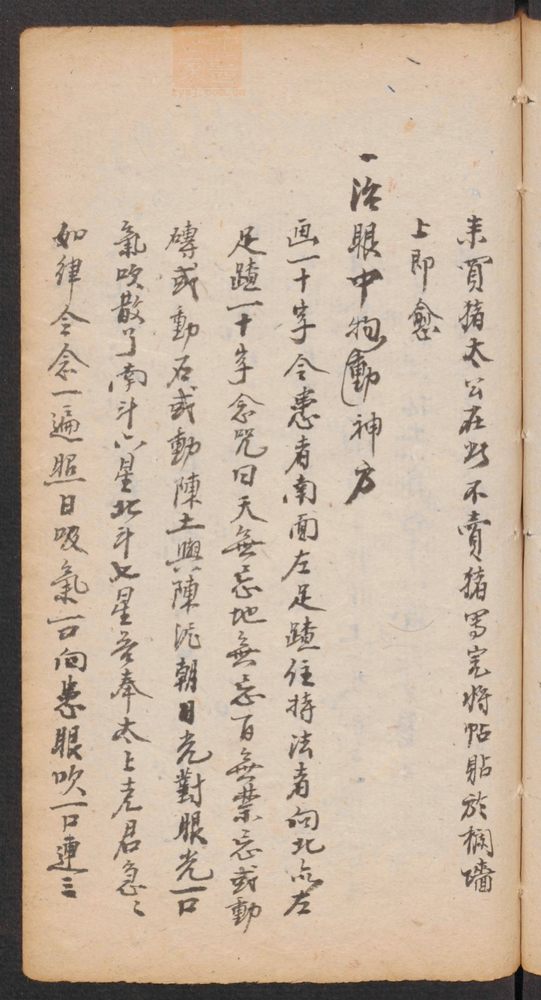 未買猪太公在此不賣猪寫完將帖貼於欄墻
上即愈
一治眼中物動神方
画一十字令患者南面左足踏住持法者向北点左
足踏一十字念咒曰天無忌地無忌百無禁忌或動
磚或動石或動陳土與陳泥朝日光對眼光一口
氣吹散了南斗六星北斗七星吾奉太上老君急〻
如律令念一遍照日吸氣一口向患眼吹一口連三